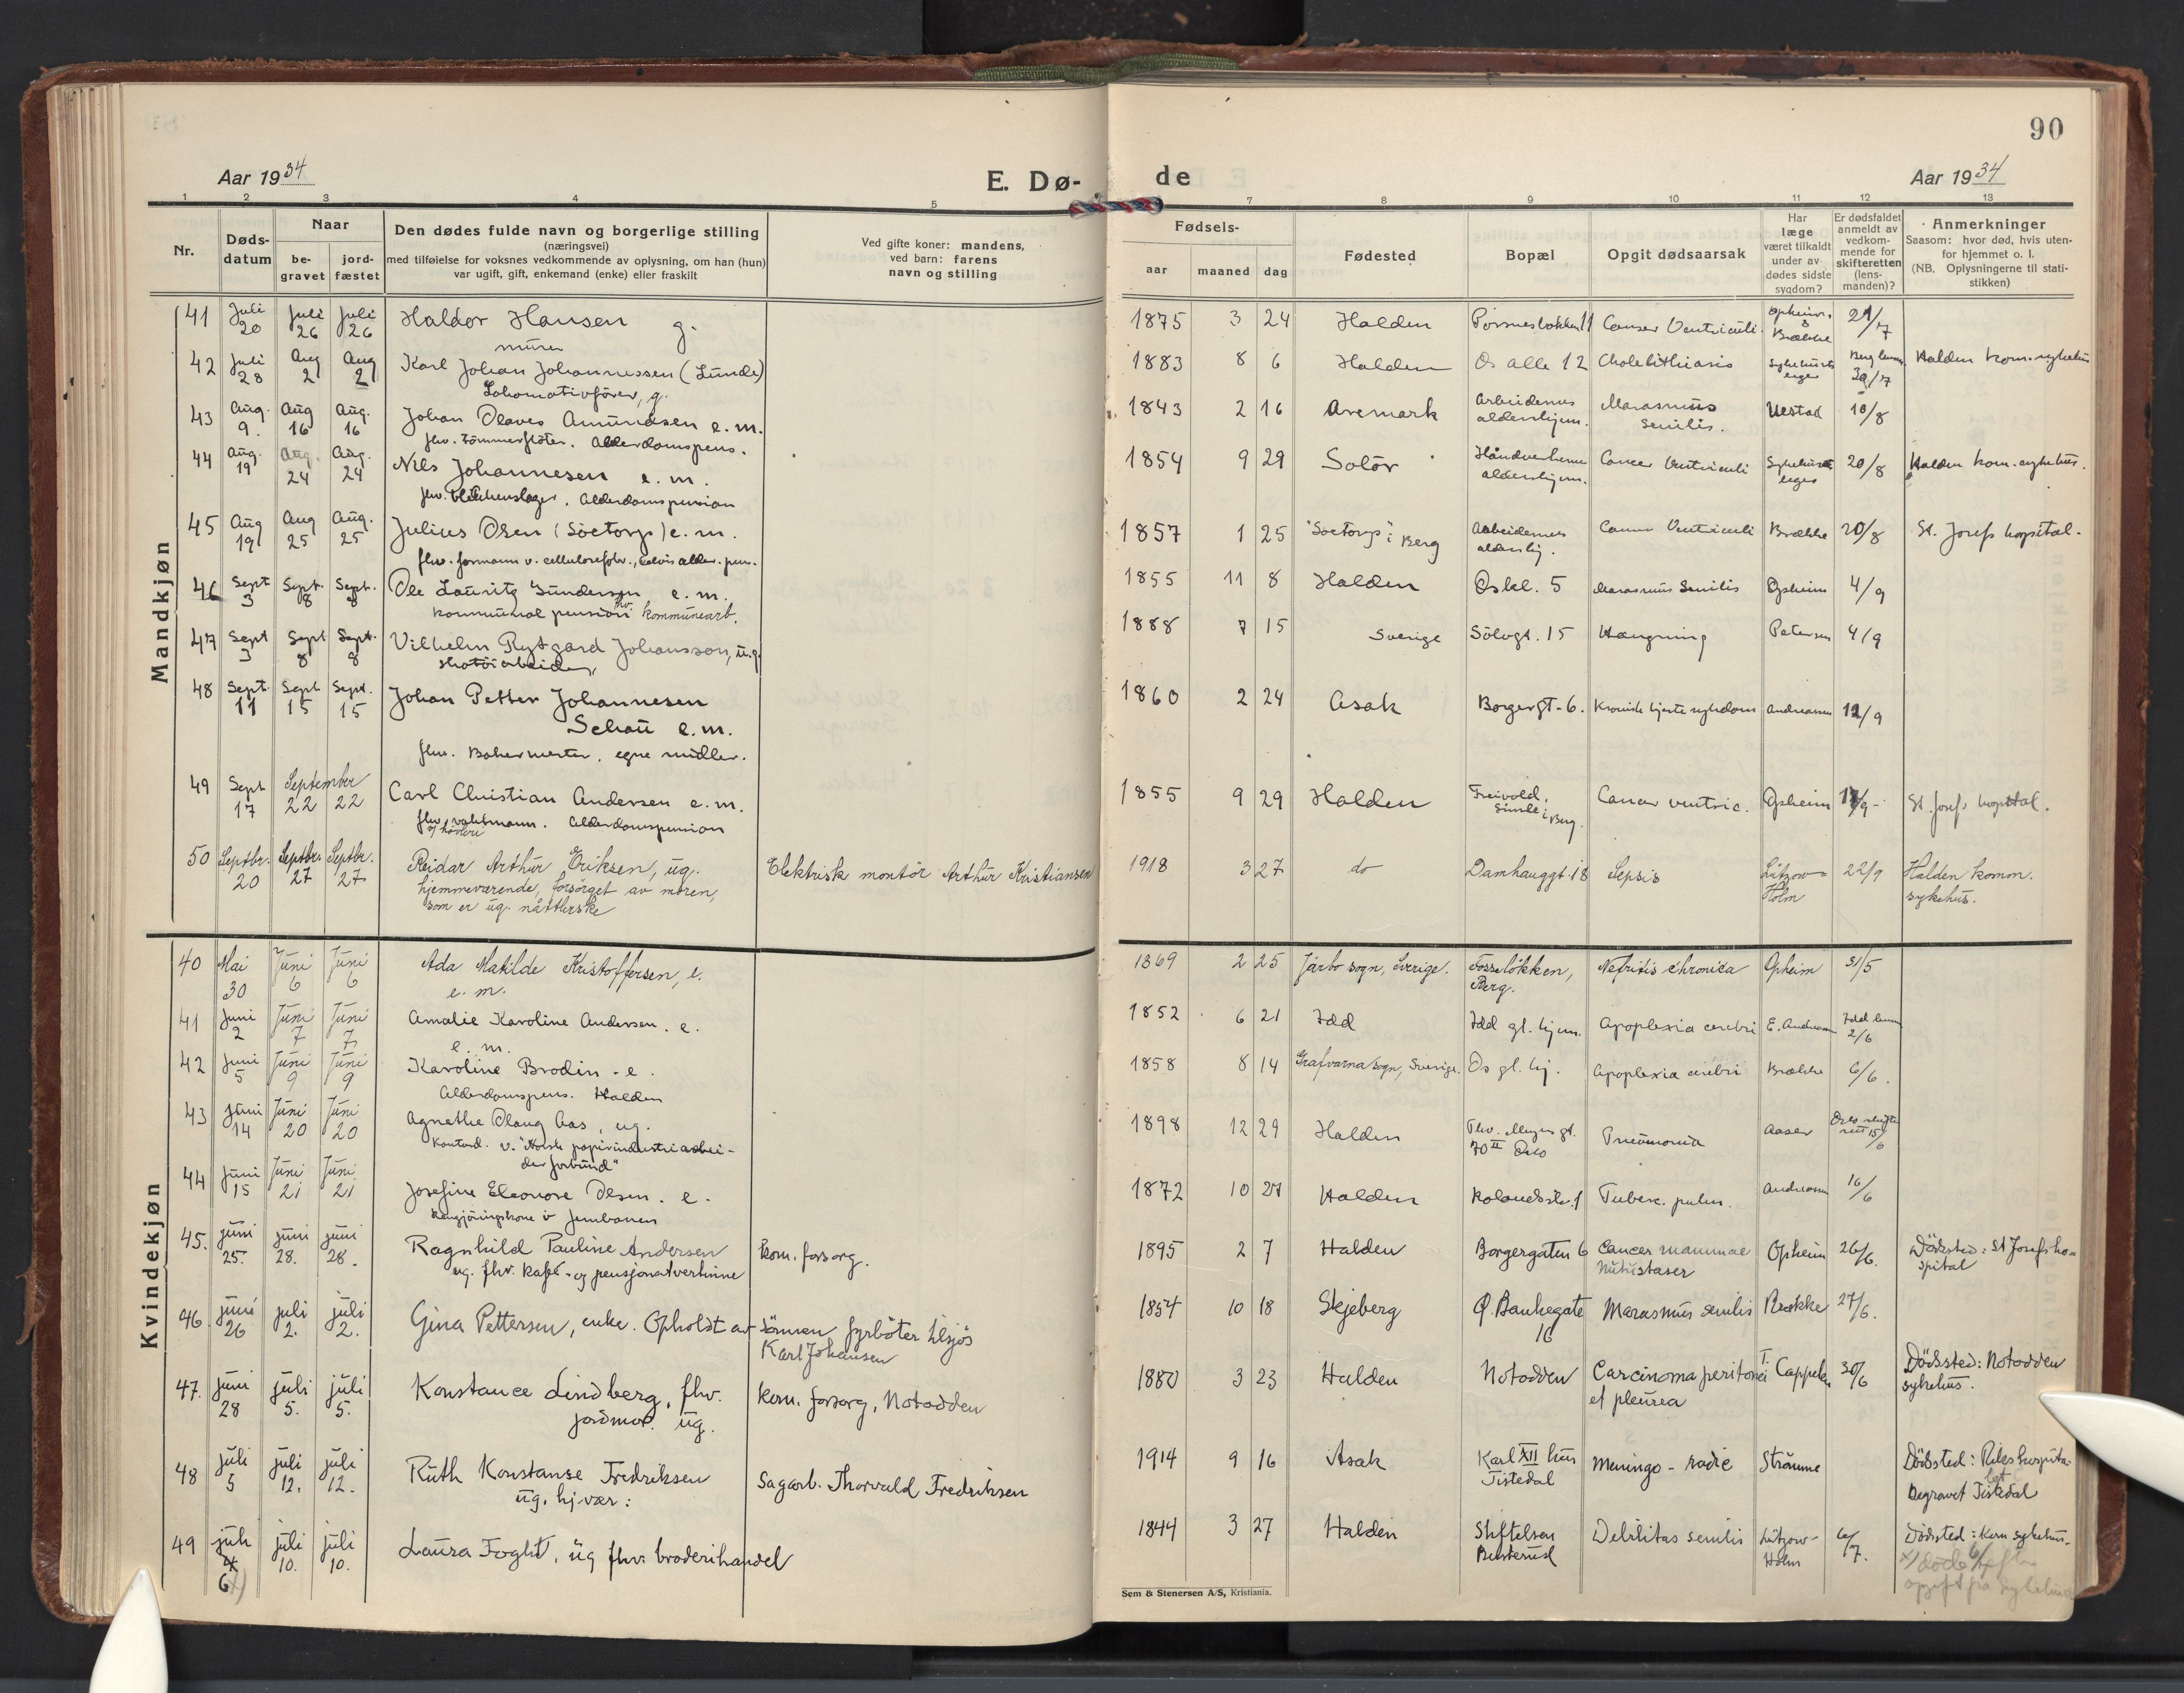 90
Aar 1934
E. Dø-
de
Aar 1934
1 2 3 4 5 7 8 9 10 11 12 13
Nr.
Døds-
datum
Naar
be-
gravet
jord-
fæstet
Den dødes fulde navn og borgerlige stilling
(næringsvei)
med tilføielse for voksnes vedkommende av oplysning, om han (hun)
var ugift, gift, enkemand (enke) eller fraskilt
Ved gifte koner: mandens,
ved barn: farens
navn og stilling
Fødsels-
aar maaned dag
Fødested
Bopæl
Opgit dødsaarsak
Har
læge
været tilkaldt
under av-
dødes sidste
sygdom?
Er dødsfaldet
anmeldt av
vedkom-
mende for
skifteretten
(lens-
manden)?
Anmerkninger
Saasom: hvor død, hvis uten-
for hjemmet o. l.
(NB. Oplysningerne til stati-
stikken)
Mandkjøn
41 Juli 20 Juli 26 Juli 26 Haldor Hansen g. 1875 3 24 Halden Cancer Ventriculi Opheim & Brække
murer
42 Juli 28 Aug 2 Aug 2 Karl Johan Johannessen (Lunde) 1883 8 6 Halden Os alle 12 Cholelithiasis 30/7 Halden kom. sykehus
Lokomotivfører, g.
43 Aug. 9. Aug 16 Aug. 16 Johan Olaves Amundsen e. m. 1843 2 16 Aremark Arbeidernes aldershjem. Marasmus senilis. 10/8
fhv. tømmerfløter. Alderdomspens.
44 Aug. 19 Aug. 24 Aug. 24 Nils Johannesen e. m. 1854 9 29 Solør alderhjem. Cancer Ventriculi 20/8 Halden kom. sykehus.
fhv. blikkenslager. Alderdomspension
45 Aug 19 Aug 25 Aug. 25 Julius Olsen (Soetorp) e. m. 1857 1 25 "Soetorp" i Berg Arbeidernes alderhj. Cancer Ventriculi Brække 20/8 St. Josefs hospital.
fhv. formann v. cellulosefabr.,
46 Sept 3 Sept. 8 Sept. 8 Ole Lauritz Gundersen e. m. 1855 11 8 Halden Oskl. 5 Marasmus Senilis Opheim 4/9
kommunal pension fhv. kommunearb.
47 Sept 3 Sept 8 Sept. 8 Vilhelm Johansson, u.g. 1888 7 15 Sverige Sølvgt. 15 Hængning Petersen 4/9
skotøiarbeider
48 Sept. 11 Sept 15 Sept. 15 Johan Petter Johannesen 1860 2 24 Asak Borgergt. 6. Kronisk hjertesykdom Andreassen 12/9
Schau e. m.
fhv. Bakermester, egne midler.
49 Sept 17 September 22 22 Carl Christian Andersen e. m. 1855 9 29 Halden Berg. Cancer ventric. Opheim St. Josefs hospital.
fhv. vaktmann. Alderdomspension
50 Septbr. 20 Septbr. 27 Septbr. 27 Reidar Arthur Eriksen, ug. Elektrisk montør Arthur Kristiansen 1918 3 27 do Damhauggt. 18 Sepsis Lützow-Holm 22/9 Halden komm. sykehus.
hjemmeværende, forsørget av moren,
som er ug. nåtlerske
Kvindekjøn
40 Mai 30 Juni 6 Juni 6 Ada Matilde Kristoffersen, e. 1869 2 25 Järbo sogn, Sverige. Fosseløkken, Berg. Nefritis chronica Opheim 31/5
e. m.
41 Juni 2 Juni 7 Juni 7 Amalie Karoline Andersen. e. 1852 6 21 Idd Idd gl. hjem. Apoplexia cerebri 2/6
e. m.
42 Juni 5 Juni 9 Juni 9 Karoline Brodin - e. 1858 8 14 Grafvarna sogn, Sverige. Os gl. hj. Apoplexia cerebri Brække 6/6.
Alderdomspens. Halden
43 Juni 14 Juni 20 Juni 20 Agnethe Olaug Aas, ug. 1898 12 29 Halden Thv. Meyers gt. 70 II Oslo Pneumonia Aaser
Kontord. v. "Norsk papirindustriarbei-
der forbund"
44 Juni 15 Juni 21 Juni 21 Josefine Eleonore Olsen. e. 1872 10 27 Halden Tuberc. pulm. Andreassen 16/6
Rengjøringskone v. Jernbanen
45. juni 25. juni 28. juni 28. Ragnhild Pauline Andersen kom. forsorg. 1895 2 7 Halden Borgergaten 6 Cancer mammae Opheim 26/6. Dödssted: St Josefsho-
ug. fhv. kafé- og pensjonatvertinne spital
46 juni 26 juli 2. juli 2. Gina Pettersen, enke. Opholdt av sönnen fyrböter tilsjös 1854 10 18 Skjeberg O. Bankegate 16 Marasmus senilis Brække 27/6.
Karl Johansen
47. juni 28 juli 5. juli 5. Konstance Lindberg, fhv. kom. forsorg, Notodden 1880 3 23 Halden Notodden Carcinoma peritonei et pleurea Cappelen 30/6 Dödssted: Notodden sykehus.
jordmor. ug.
48 juli 5 juli 12. juli 12. Ruth Konstanse Fredriksen Sagarb. Thorvald Fredriksen 1914 9 16 Asak Karl XII hus Tistedal Meningo - radic Strömme Dödssted: Rikshospita-
ug. hj.vær: let
Begravet Tistedal
49 juli 6 x) juli 10. juli 10. Laura Foght, ug fhv. broderihandel 1844 3 27 Halden Stiftelsen Debilitas senilis Lützow-Holm 6/7. Dödssted: Kom sykehus.
x) døde 6/7
opgift fra sykehuset
Sem & Stenersen A/S, Kristiania.